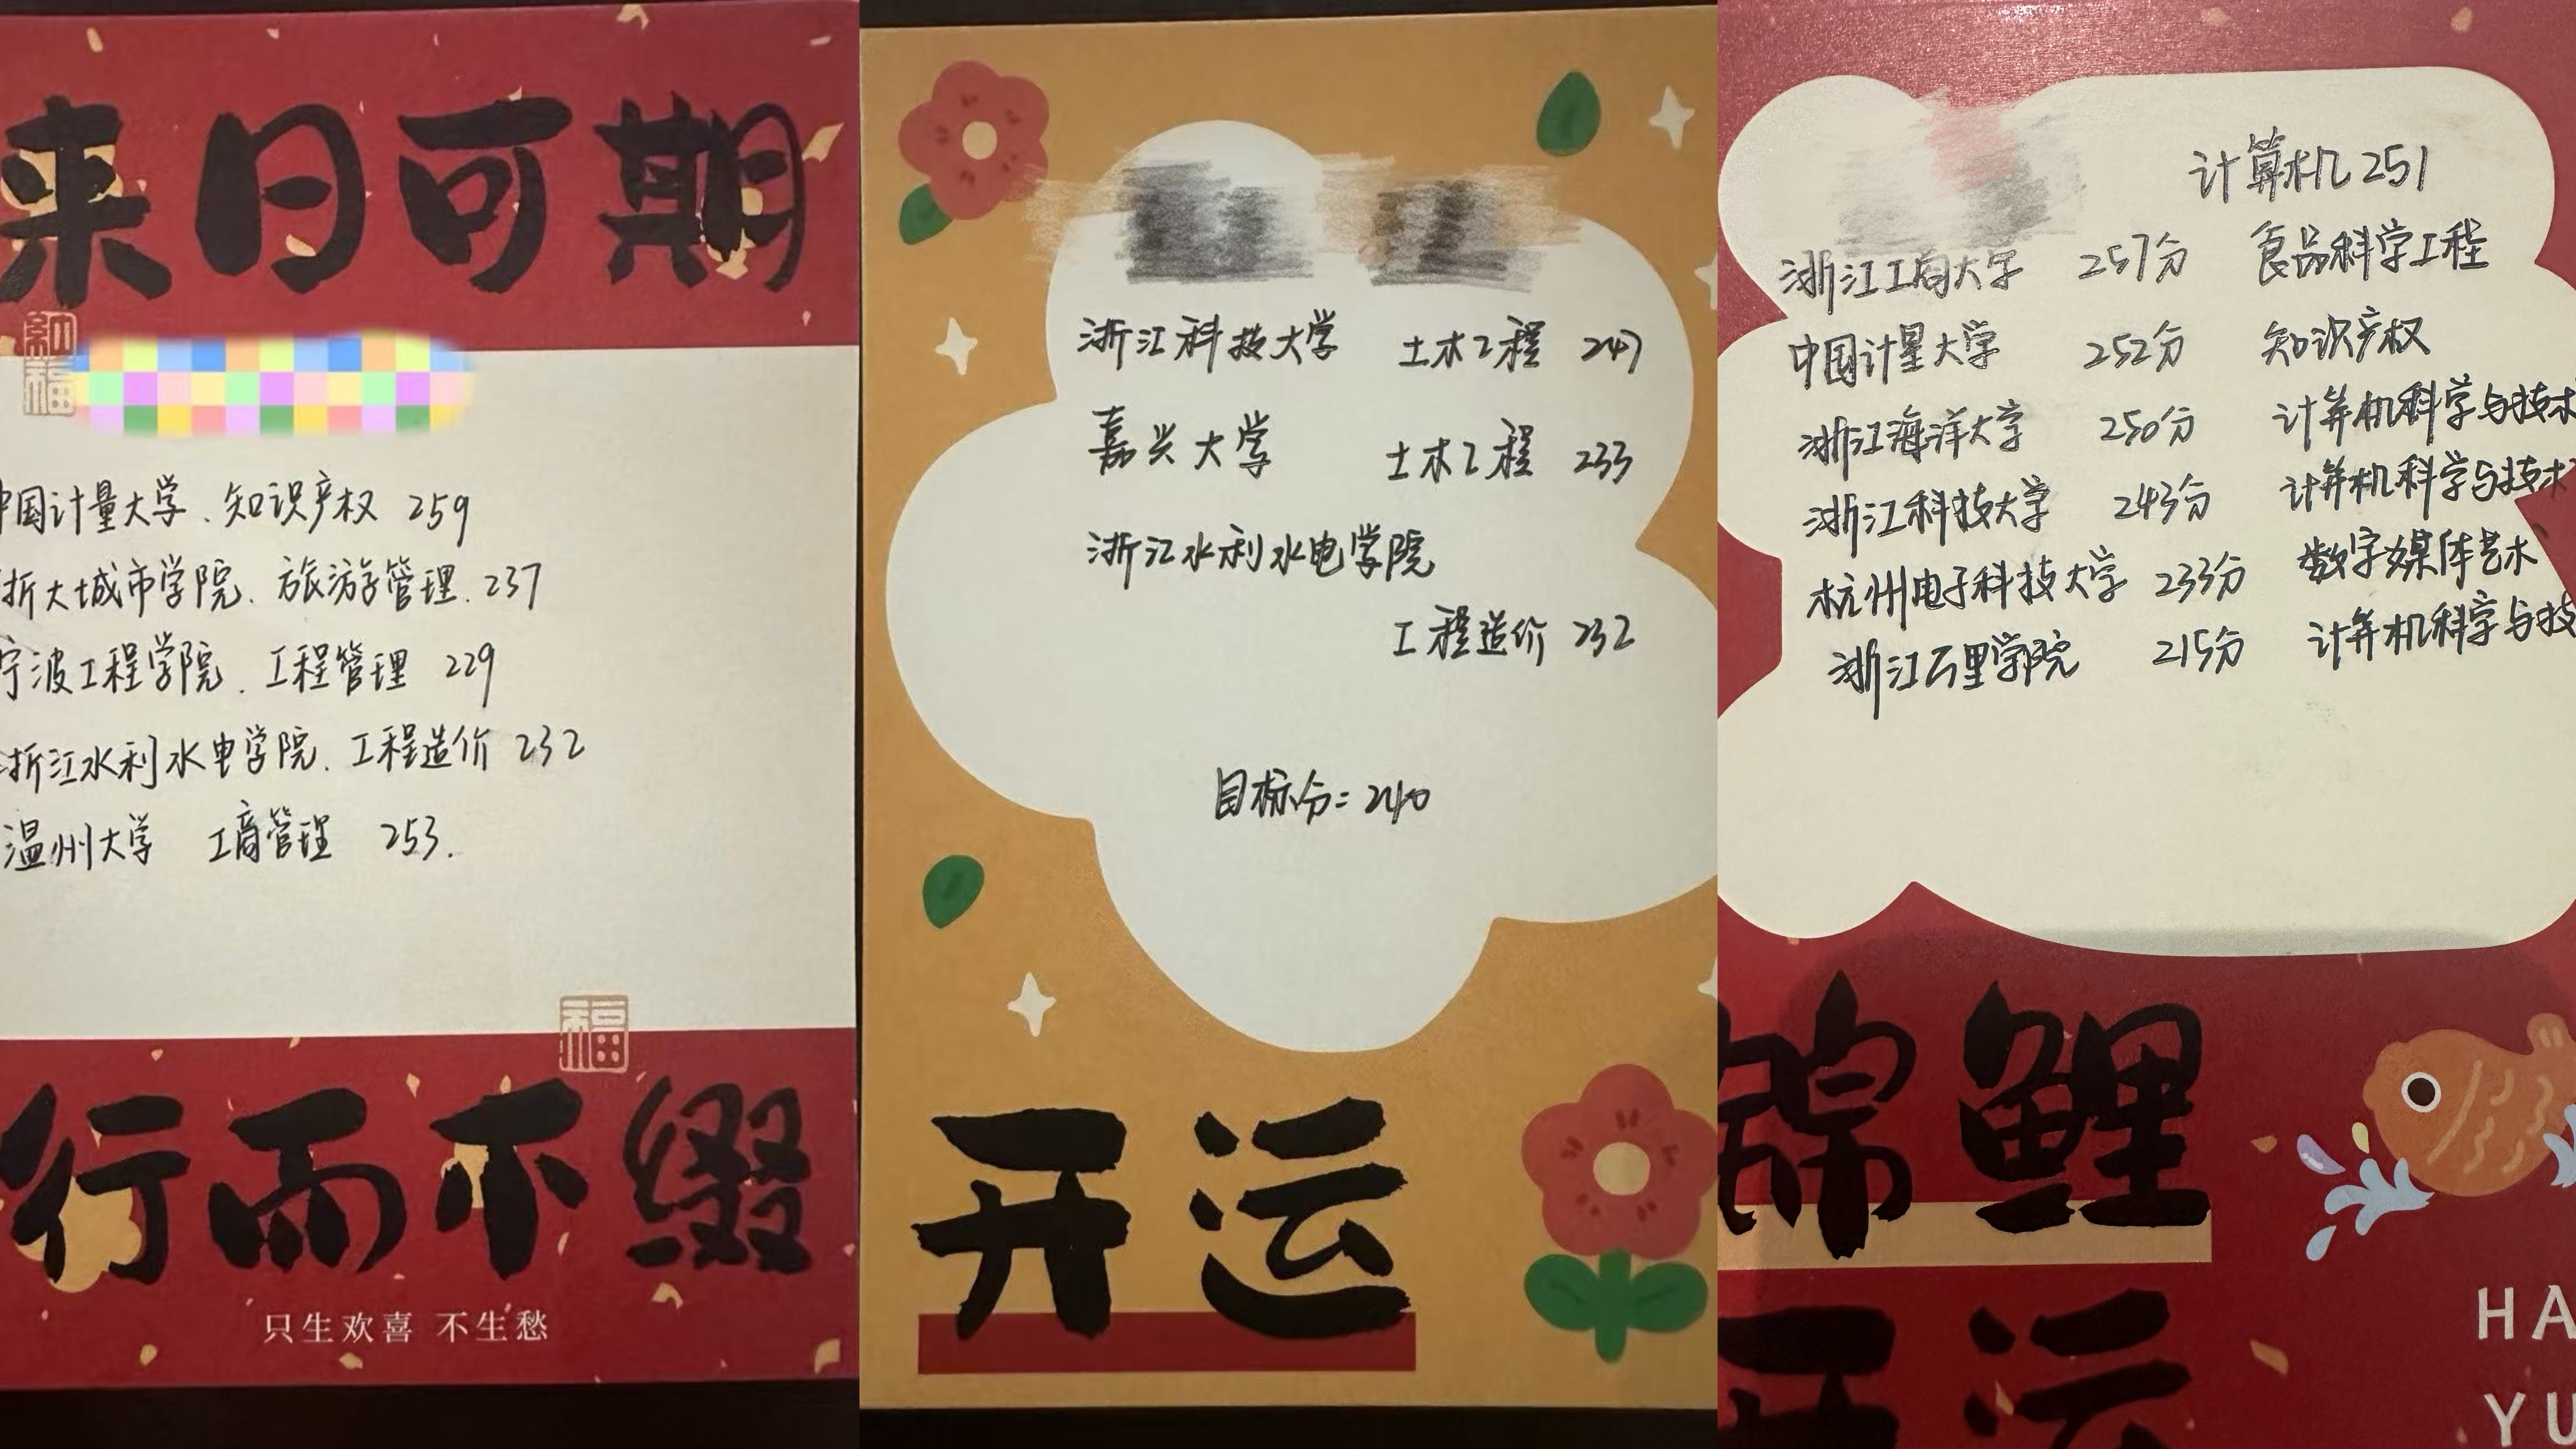 来日可期
納福
中国计量大学、知识产权 259
浙大城市学院、旅游管理、237
宁波工程学院、工程管理 229
浙江水利水电学院、工程造价 232
温州大学 工商管理 253.
福
行而不缀
只生欢喜 不生愁
浙江科技大学 土木工程 247
嘉兴大学 土木工程 233
浙江水利水电学院
工程造价 232
目标分=240
开运
计算机251
浙江工商大学 257分 食品科学工程
中国计量大学 252分 知识产权
浙江海洋大学 250分 计算机科学与技术
浙江科技大学 243分 计算机科学与技术
杭州电子科技大学 233分 数字媒体艺术
浙江万里学院 215分 计算机科学与技
锦鲤
开运
HA
YU